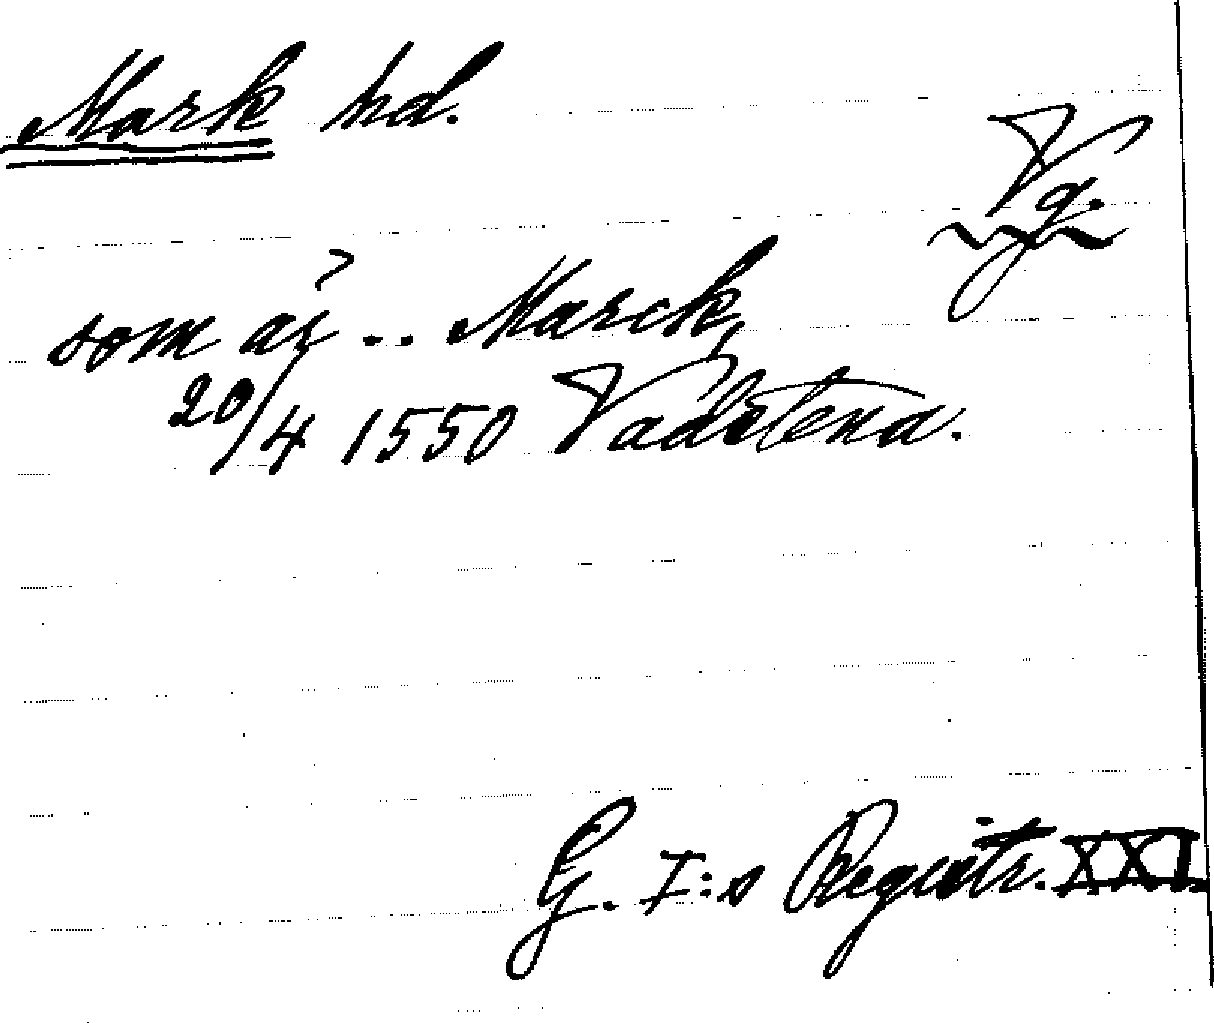 Mark hd.
Vg.
som är .. Marck,
20/4 1550 Vadstena.
G. I:s Registr. XXI